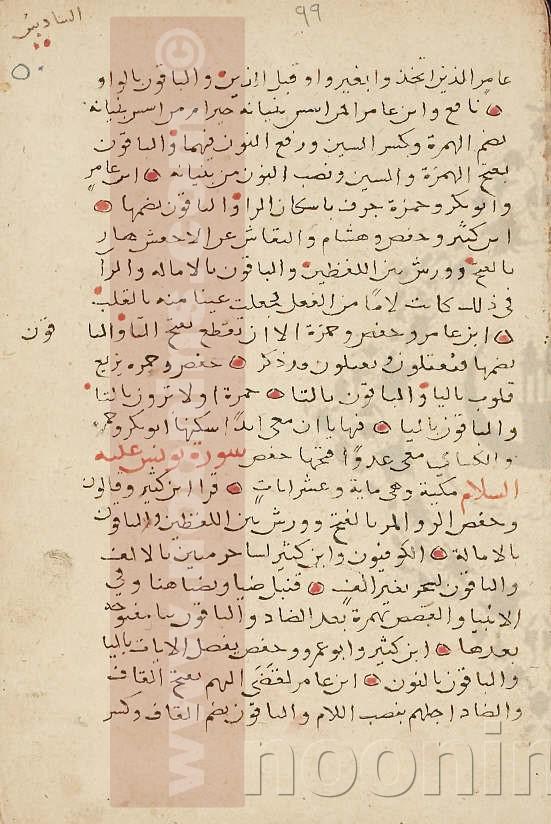 السادس
٩٩
عامر الذين اتخذوا بغير واو قبل الذين والباقون بالواو
نافع وابن عامر افمن اسس بنيانه خير ام من اسس بنيانه
بضم الهمزة وكسر السين ورفع النون فيهما والباقون
بفتح الهمزة والسين ونصب النون من بنيانه ابن عامر
وابو بكر وحمزة جرف باسكان الرا والباقون بضمها
ابن كثير وحفص وهشام والنقاش عن الاخفش هار
بالفتح وورش بين اللفظين والباقون بالامالة والرا
في ذلك كانت لاما من الفعل فجعلت عينا منه بالقلب
ابن عامر وحفص وحمزة الا ان تقطع بفتح التا والبا قون
بضمها فيقتلون ويقتلون قد ذكر حفص وحمزه يزيغ
قلوب باليا والباقون بالتا حمزة اولا ترون بالتا
والباقون باليا فيها ياان معي ابدا اسكنها ابو بكر وحمزة
والكسائي معي عدوا فتحها حفص سورة يونس عليه
السلام مكية وهي ماية وعشر ايات قرا ابن كثير وقالون
وحفص الر والمر بالفتح وورش بين اللفظين والباقون
بالامالة الكوفيون وابن كثير لساحر مبين بالالف
والباقون لسحر بغير الف قنبل ضياء وبضياء هنا وفي
الانبيا والقصص بهمزة بعد الضاد والباقون بيا مفتوحة
بعدها ابن كثير وابو عمرو وحفص يفصل الايات باليا
والباقون بالنون ابن عامر لقضى اليهم بفتح القاف
والضاد اجلهم بنصب اللام والباقون بضم القاف وكسر
noonin